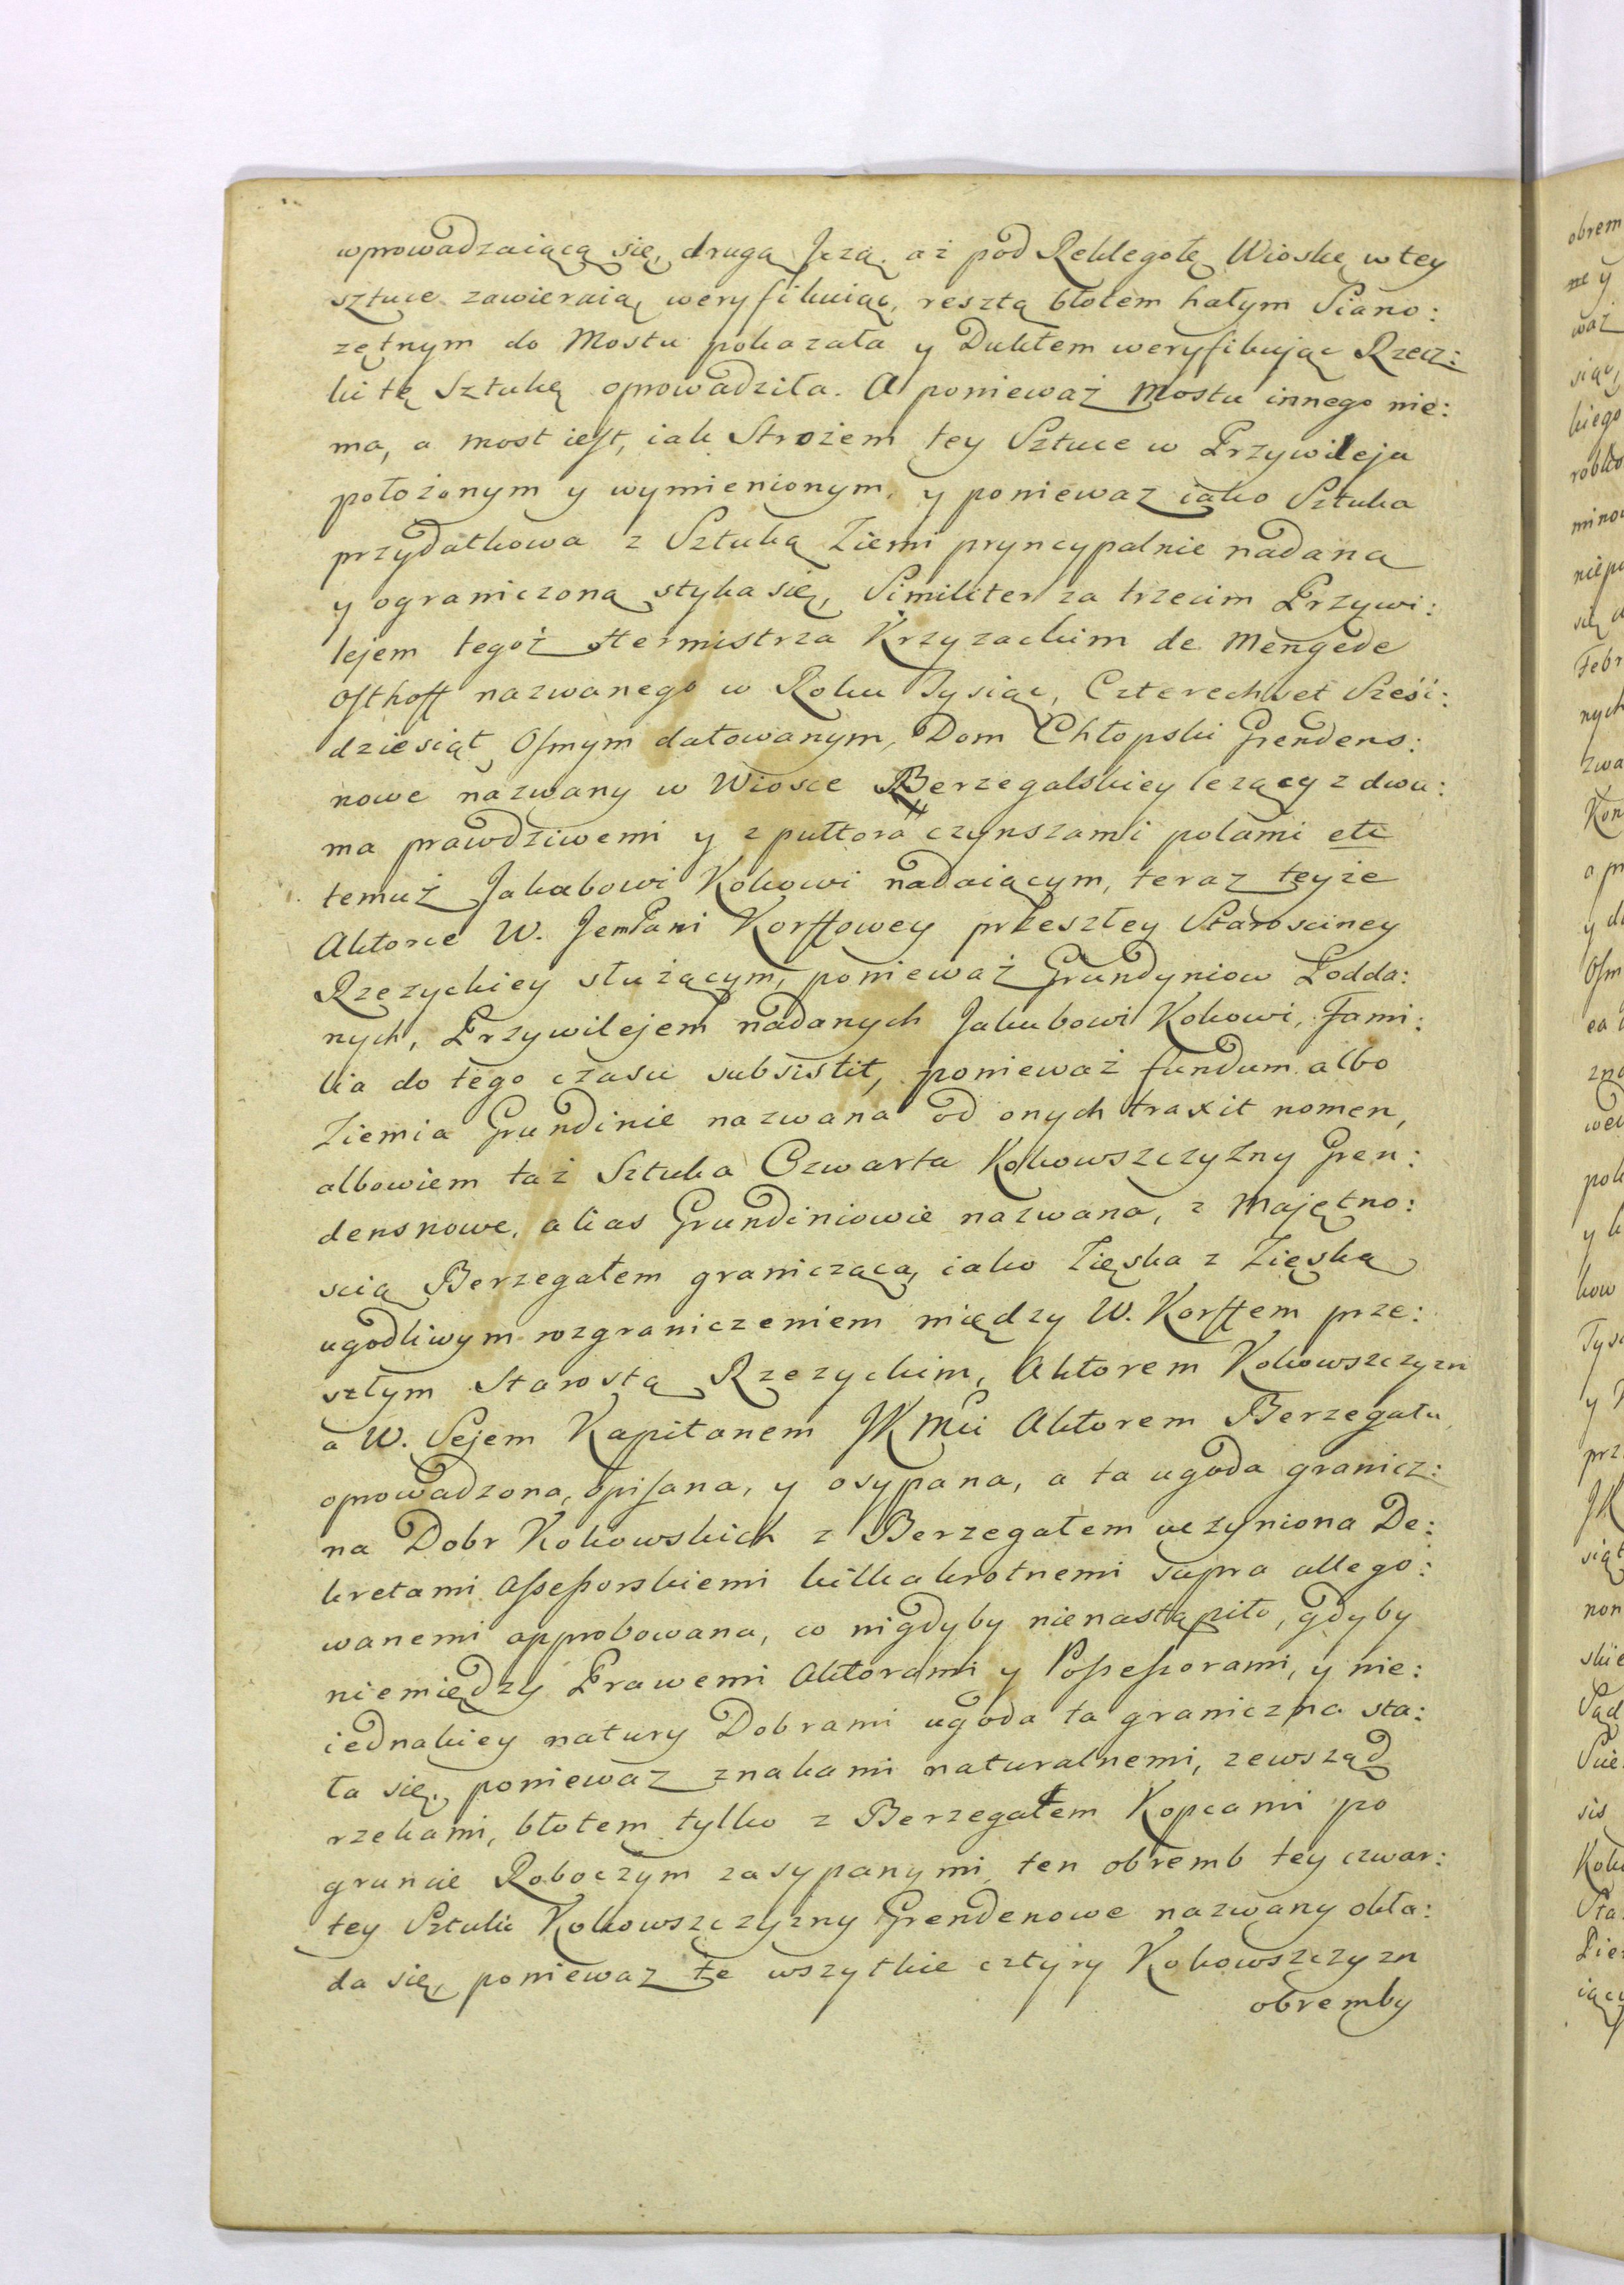 wprowadzaiącą się, drugą Jezą aż pod Reklegolę Wioskę w tey
sztuce zawieraią weryfikuiąc, resztą błotem hałym Siano:
zętnym do Mostu pokazała y Duktem weryfikując Rzecz:
ki tę Sztukę oprowadziła. A ponieważ Mostu innego nie:
ma, a most iest, iak Strożem tey Sztuce w Przywileju
położonym y wymienionym, y poniewaz iako Sztuka
przydatkowa z Sztuką Ziemi pryncypalnie nadaną
y ograniczoną styka się, Similiter za trzecim Przywi:
lejem tegoż Hermistrza Krzyzackim de Mengede
Osthoff nazwanego w Roku Tysiąc, Czterechset Sześć:
dziesiąt Osmym datowanym, Dom Chłopski Grendens:
nowe nazwany w Wiosce Berzegalskiey lezący z dwu:
ma prawdziwemi y z pułtora czynszami polami etc
temuż Jakubowi Kokowi nadaiącym, teraz teyże
Aktorce W. JemPani Korffowey przeszłey Starosciney
Rzezyckiey służącym, ponieważ Grundyniow Podda:
nych, Przywilejem nadanych Jakubowi Kokowi, Fami:
lia do tego czasu subsistit, ponieważ fundum albo
Ziemia Grundinie nazwana od onych traxit nomen,
albowiem taż Sztuka Czwarta Kokowszczyzny Gren:
densnowe, alias Grundiniowie nazwana, z Majętno:
scią Berzegałem graniczącą, iako Zięska z Zięską
ugodliwym rozgraniczeniem między W. Korffem prze:
szłym Starostą Rzezyckim, Aktorem Kokowszczyzn
a W. Sejem Kapitanem JK Mci Aktorem Berzegału
oprowadzona, opisana, y osypana, a ta ugoda granicz:
na Dobr Kokowskich z Berzegałem uczyniona De:
kretami Assessorskiemi kilkakrotnemi supra allego:
wanemi approbowana, co nigdyby nienastąpiło, gdyby
niemiędzy Prawemi Aktorami y Possessorami, y nie:
iednakiey natury Dobrami ugoda ta graniczna sta:
ła się, poniewaz znakami naturalnemi, zewsząd
rzekami, błotem tylko z Berzegałem Kopcami po
gruncie Roboczym zasypanymi, ten obremb tey czwar:
tey Sztuki Kokowszczyzny Grendenowe nazwany okła:
da się, poniewaz te wszytkie cztyry Kokowszczyzn
obremby